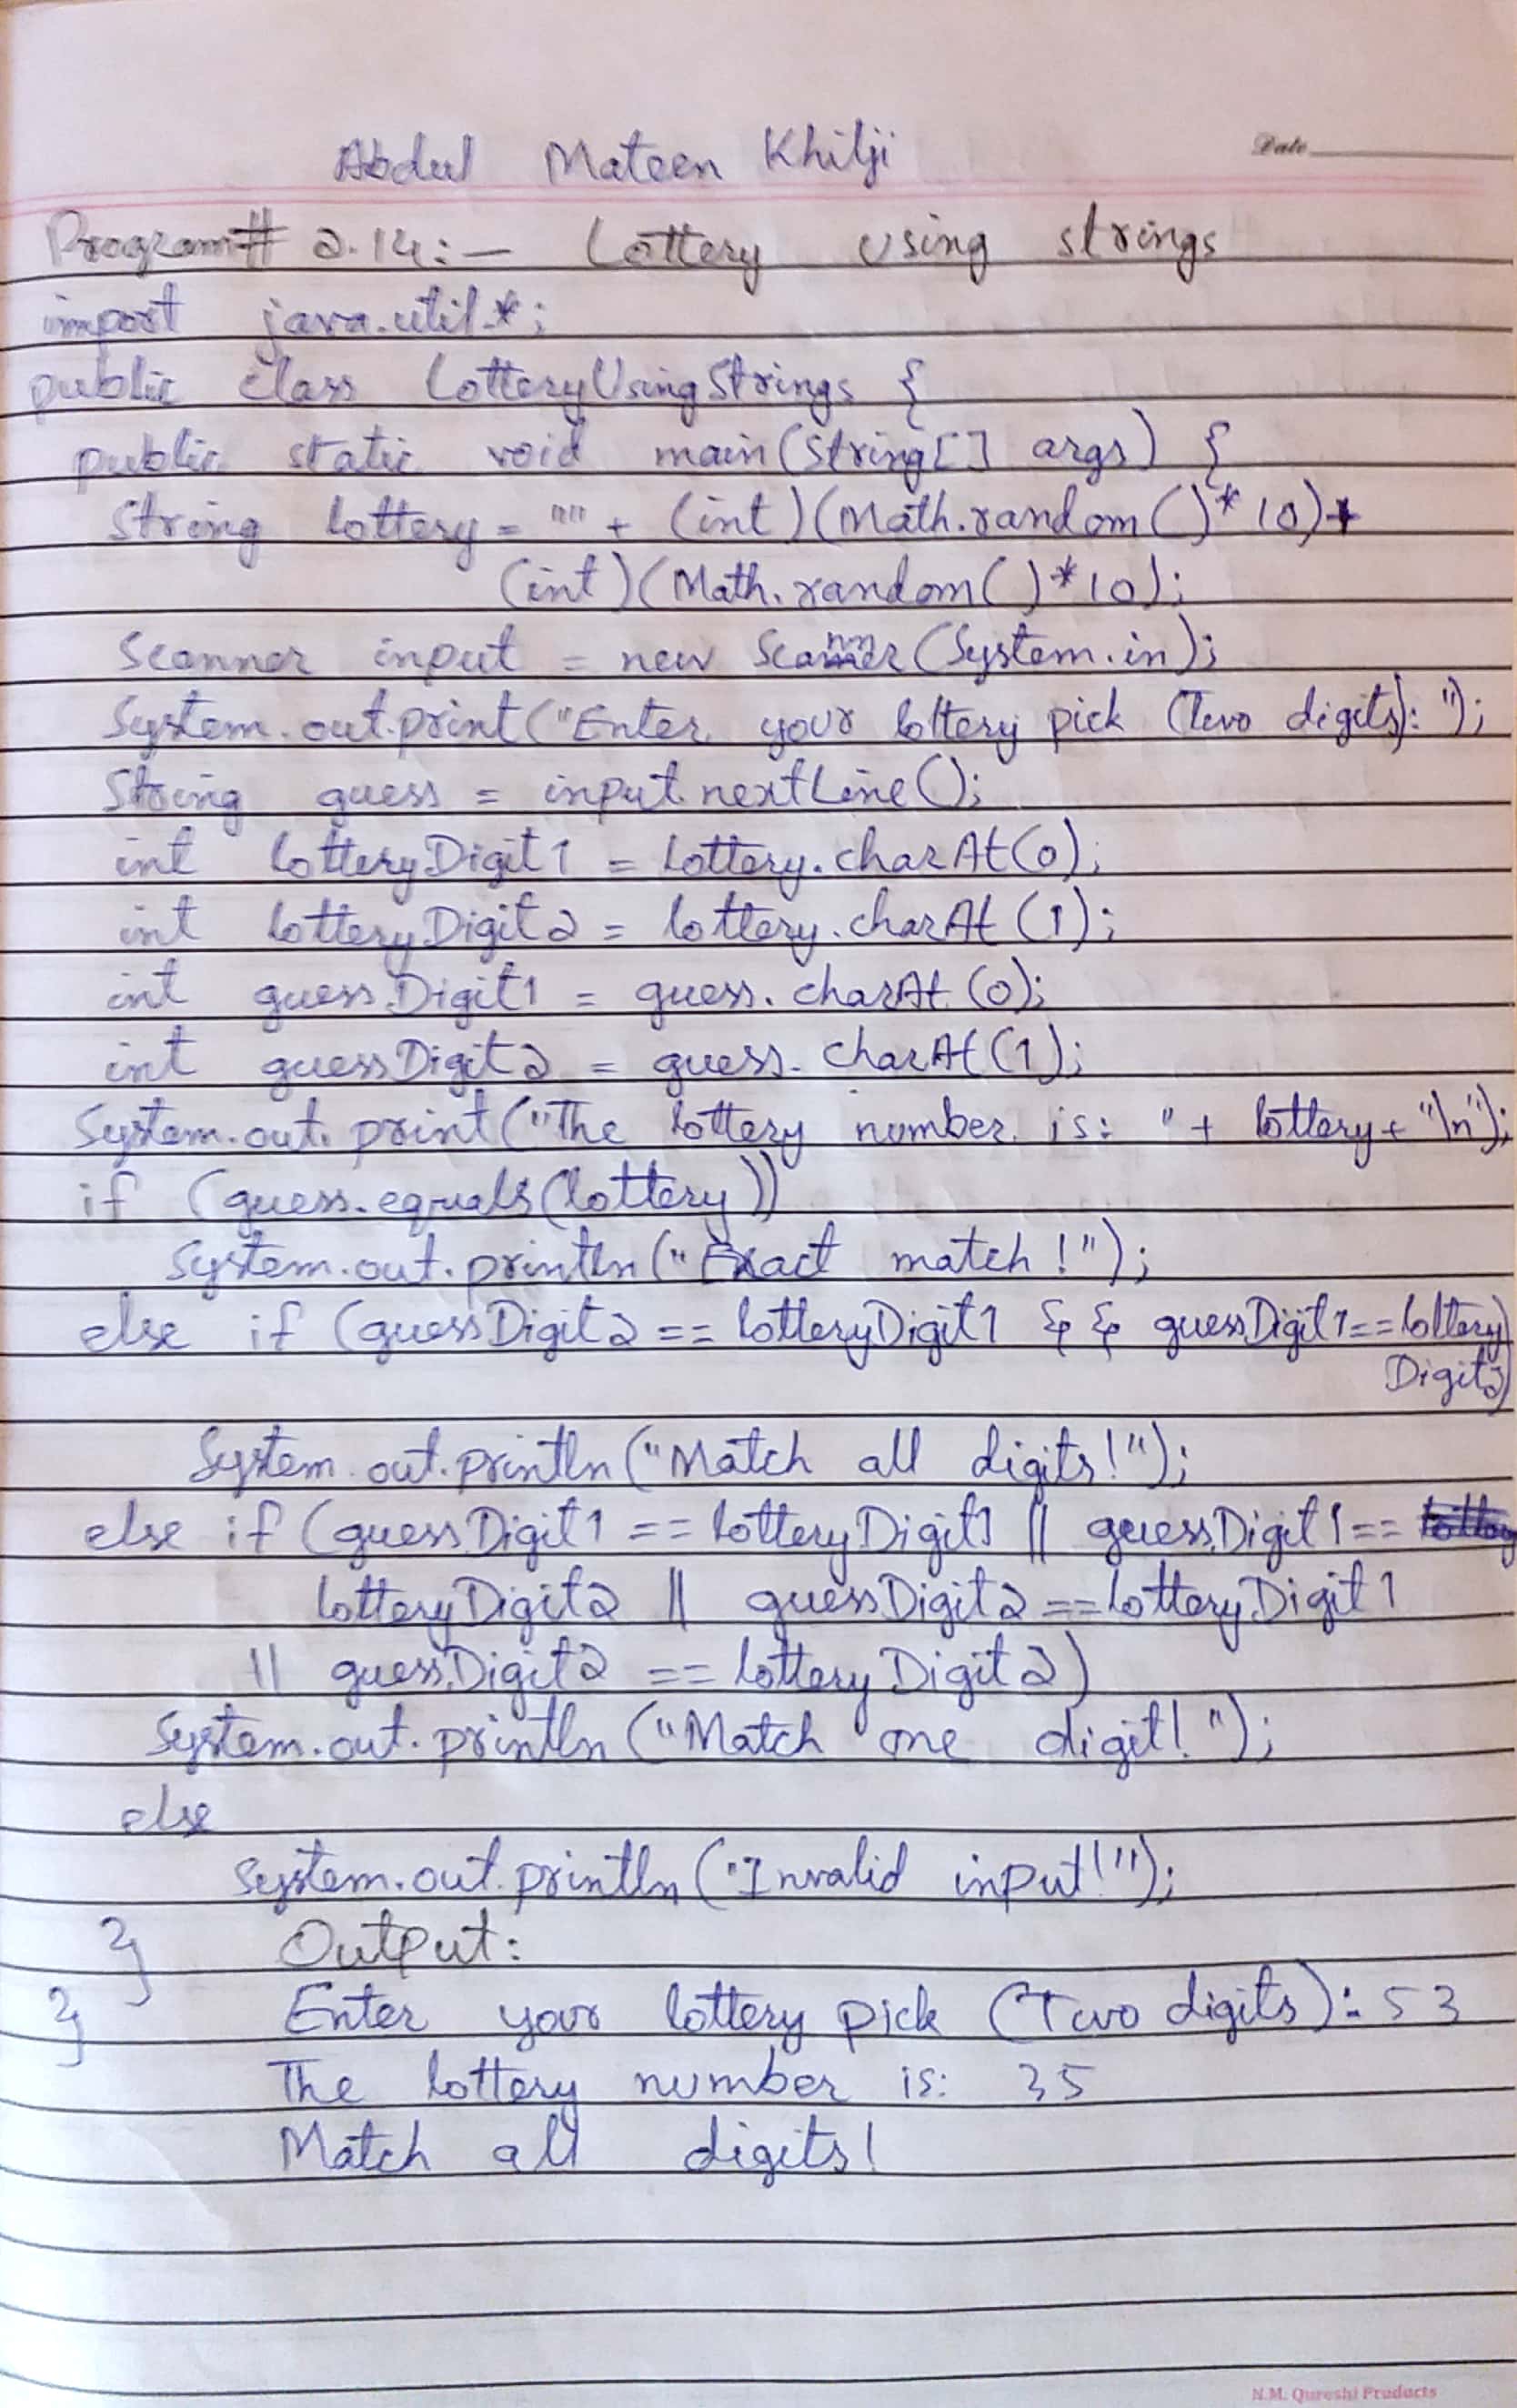 Abdul Mateen Khilji
Date
Program# 2.14:- Lottery using strings
import java.util.*;
public class LotteryUsingStrings {
public static void main(String[] args) {
String lottery = "" + (int)(Math.random()*10)+
(int)(Math.random()*10);
Scanner input = new Scanner(System.in);
System.out.print("Enter your lottery pick (Two digits): ");
String guess = input.nextLine();
int lotteryDigit1 = lottery.charAt(0);
int lotteryDigit2 = lottery.charAt(1);
int guessDigit1 = guess.charAt(0);
int guessDigit2 = guess.charAt(1);
System.out.print("The lottery number is: " + lottery + "\n");
if (guess.equals(lottery))
System.out.println("Exact match!");
else if (guessDigit2 == lotteryDigit1 && guessDigit1==lottery
Digit2)
System.out.println("Match all digits!");
else if (guessDigit1 == lotteryDigit1 || guessDigit1==
lotteryDigit2 || guessDigit2 == lotteryDigit1
|| guessDigit2 == lotteryDigit2)
System.out.println("Match one digit!");
else
System.out.println("Invalid input!");
} Output:
} Enter your lottery pick (Two digits): 53
The lottery number is: 35
Match all digits!
N.M. Qureshi Products